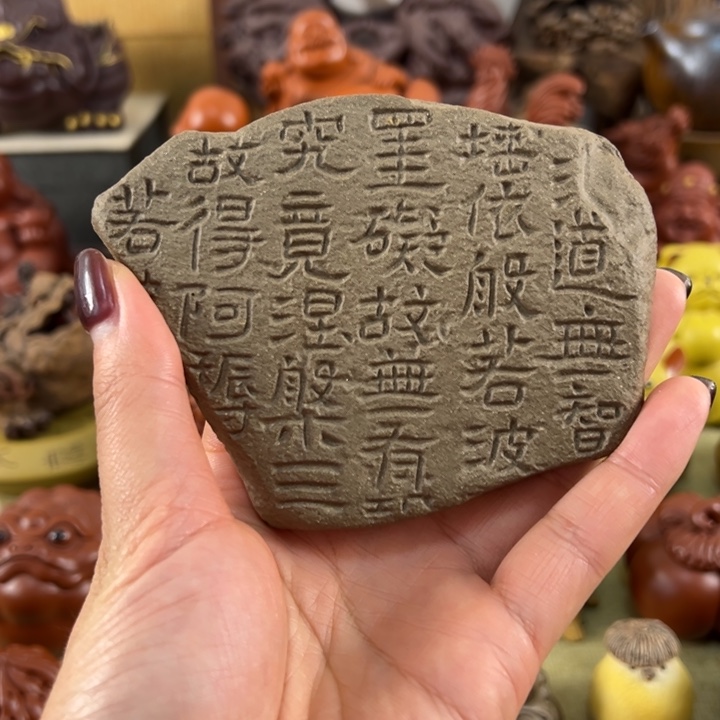 道無智
埵依般若波
罣礙故無有恐
究竟涅槃三
故得阿耨
若